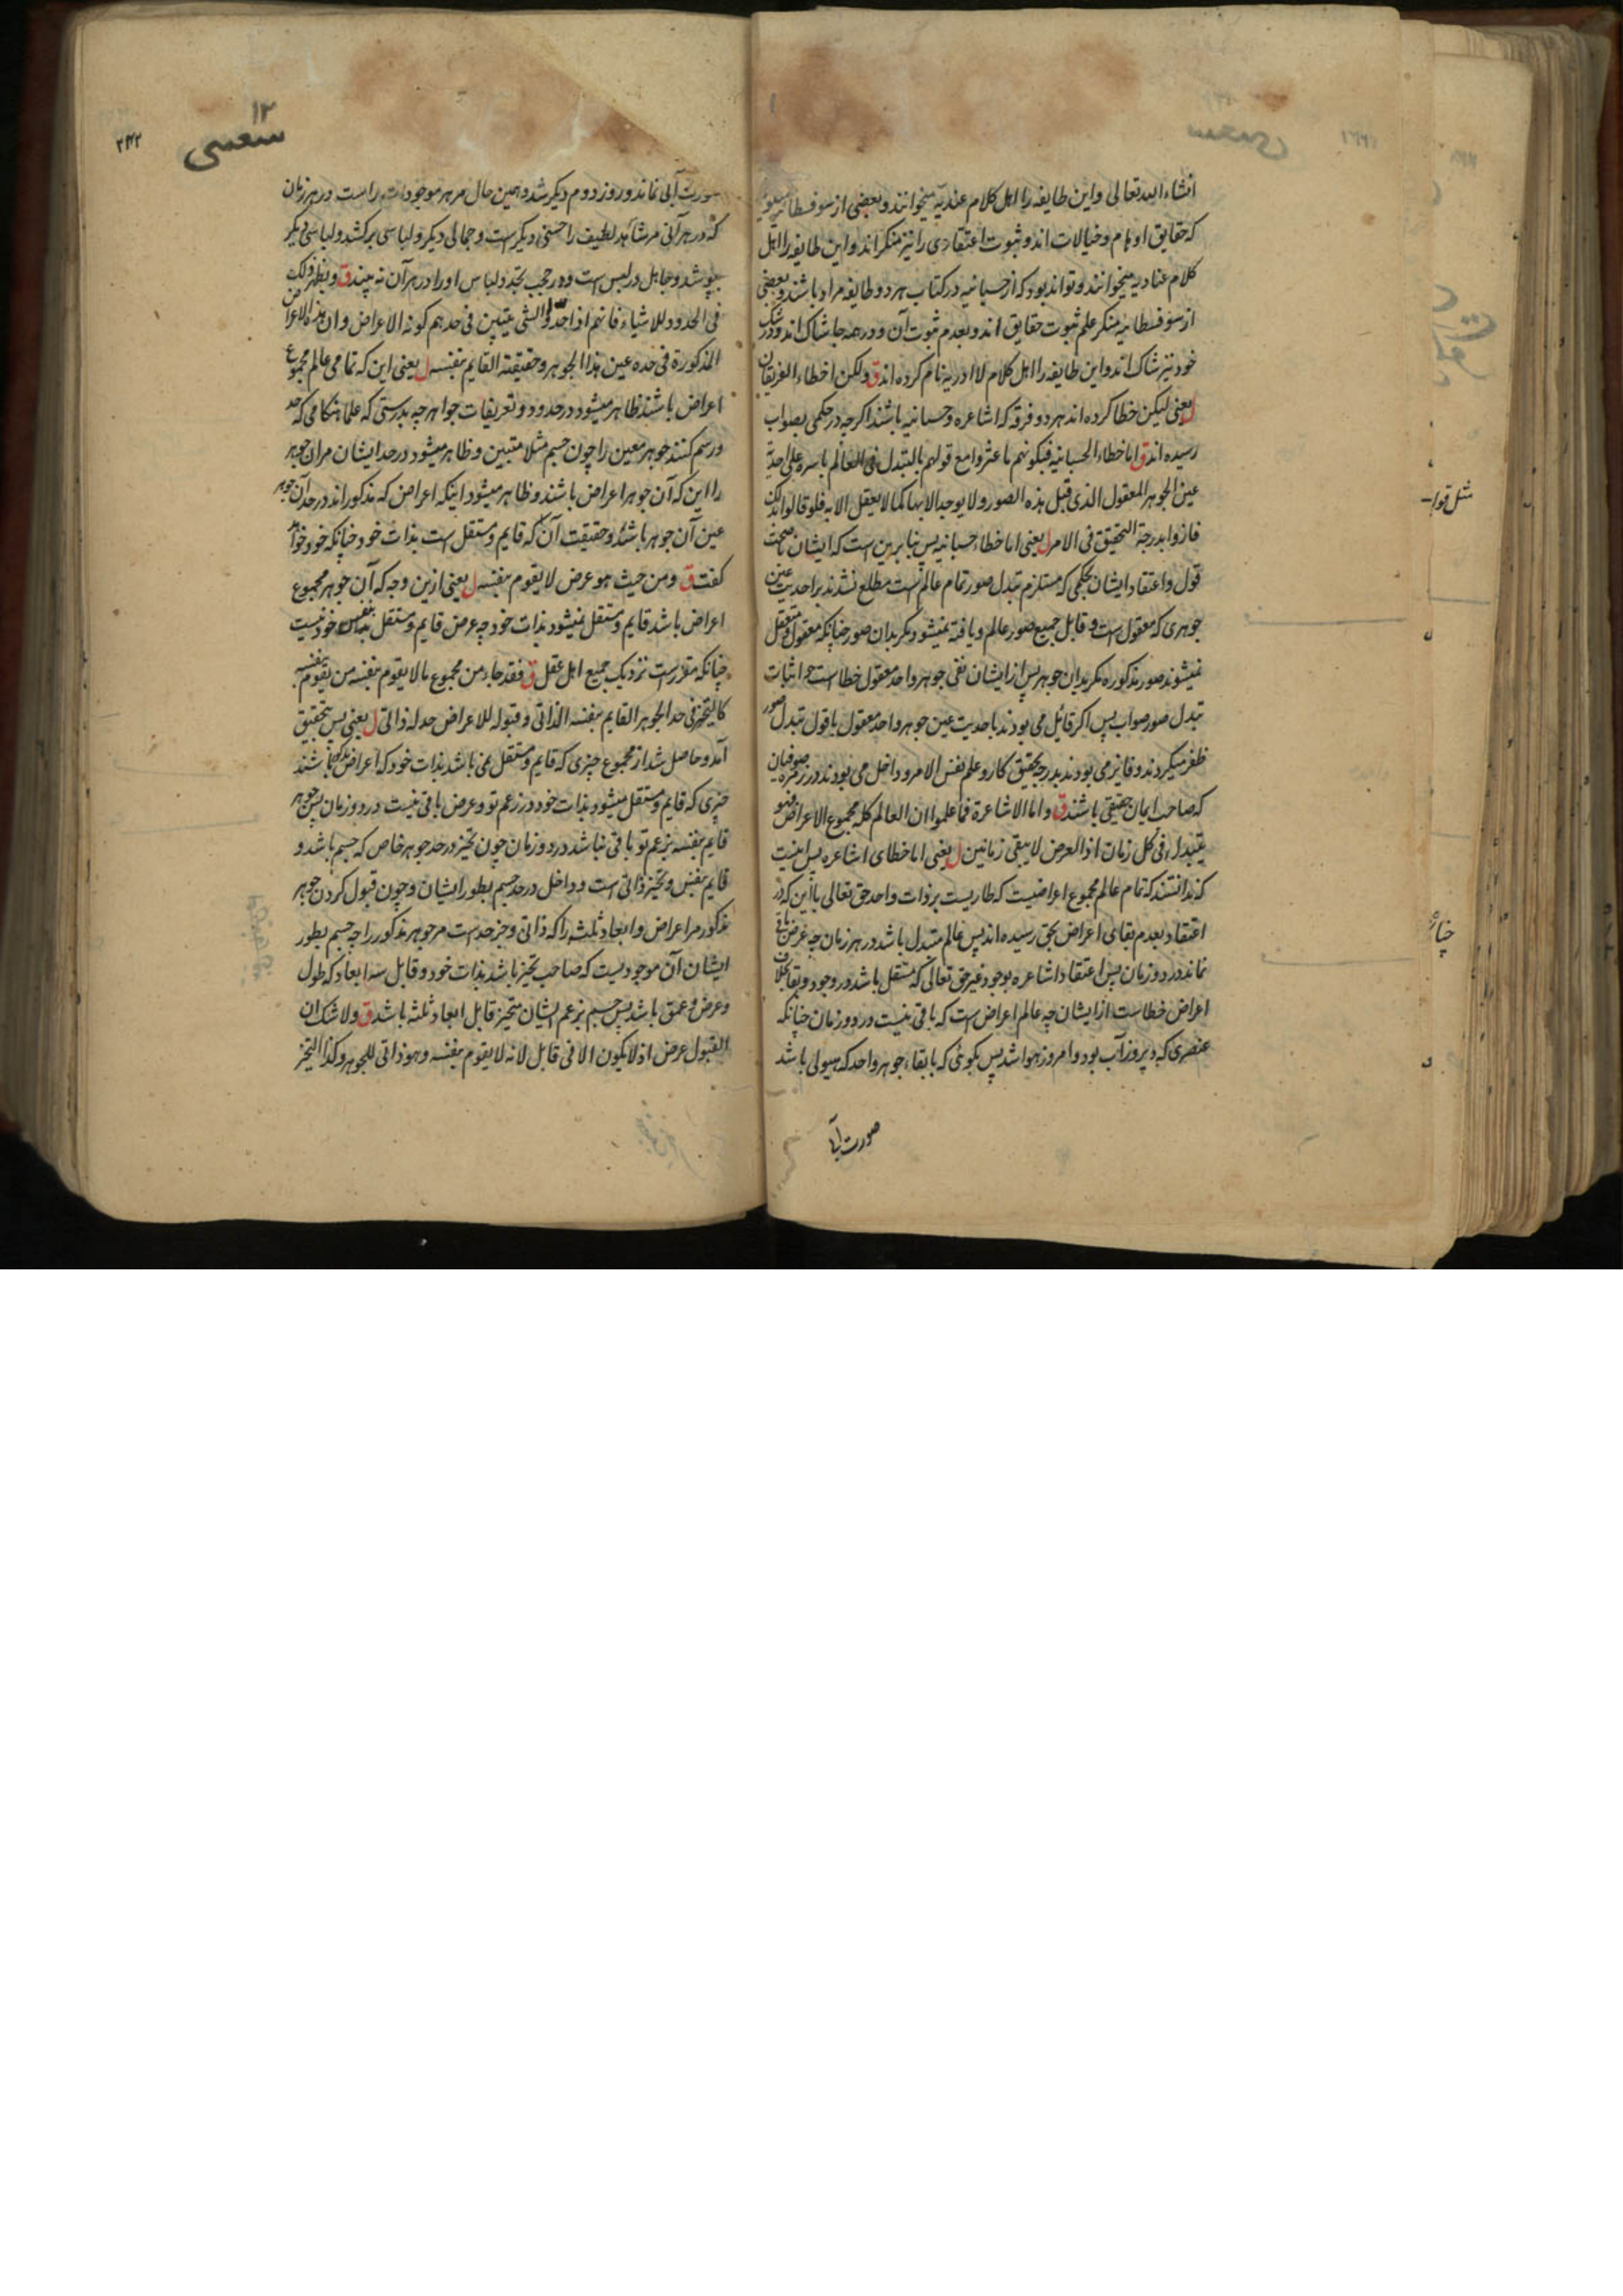 انشاء الله تعالی و این طایفه را اهل کلام عندیه میخوانند و بعضی از سوفسطائیه میگویند
که حقایق اوهام و خیالات اند و ثبوت اعتقادی را نیز منکر اند و این طایفه را اهل
کلام عنادیه میخوانند و تواند بود که از حسبانیه در کتاب هر دو طایفه مراد باشند و بعضی
از سوفسطائیه منکر علم ثبوت حقایق اند و بعدم ثبوت آن و در همه جا شاک اند و در شک
خود نیز شاک اند و این طایفه را اهل کلام لا ادریه نام کرده اند ق ولکن اخطاء الفریقان
ل یعنی لیکن خطا کرده اند هر دو فرقه که اشاعره و حسبانیه باشند اگرچه در حکمی بصواب
رسیده اند ق اما خطاء الحسبانیه فبکونهم ما عثروا مع قولهم بالتبدل فی العالم باسره علی احدیة
عین الجوهر المعقول الذی قبل هذه الصور ولا یوجد الا بها کما لا یعقل الا به فلو قالوا بذلک
فازوا بدرجة التحقیق فی الامر ل یعنی اما خطاء حسبانیه پس بنا برین است که ایشان بصحت
قول و اعتقاد ایشان بحکمی که مستلزم تبدل صور تمام عالم است مطلع نشدند بر احدیت عین
جوهری که معقول است و قابل جمیع صور عالم و یافته نمیشود مگر بدان صور چنانکه معقول و متعقل
نمیشوند صور مذکوره مگر بدان جوهر پس از ایشان نفی جوهر واحد معقول خطاست و اثبات
تبدل صور صواب پس اگر قائل می بودند باحدیت عین جوهر واحد معقول با قول تبدل صور
ظفر میگردند و فایز می بودند بدرجه تحقیق کار و علم نفس الامر و داخل می بودند در زمره صوفیان
که صاحب ایمان حقیقی باشند ق و اما الاشاعرة فما علموا ان العالم کله مجموع الاعراض فهو
یتبدل فی کل زمان اذ العرض لا یبقی زمانین ل یعنی اما خطای اشاعره پس اینست
که ندانستند که تمام عالم مجموع اعراضیست که طاریست بر ذات واحد حق تعالی با این که در
اعتقاد بعدم بقای اعراض بحق رسیده اند پس عالم متبدل باشد در هر زمان چه عرض باقی
نماند در دو زمان پس اعتقاد اشاعره بوجود غیر حق تعالی که مستقل باشد در وجود و بقا بخلاف
اعراض خطاست از ایشان چه عالم اعراض است که باقی نیست در دو زمان چنانکه
عنصری که دیروز آب بود و امروز هوا شد پس بگوئی که با بقاء جوهر واحد که هیولی باشد
صورت آ
۱۲
۲۴۲
صورت آبی نماند و روز دوم دیگر شد و همین حال مر هر موجودات راست در هر زمان
که در هر آنی مر شاهد لطیف را حسنی دیگر است و جمالی دیگر و لباسی برکشد و لباسی دیگر
بپوشد و جاهل در لبس است و در حجب تجدد لباس او را در هر آن نه بیند ق و یظهر ذلک
فی الحدود للاشیاء فانهم اذا حدوا الشی یتبین فی حدهم کونه الاعراض و ان هذه الاعراض
المذکورة فی حده عین هذا الجوهر و حقیقته القایم بنفسه ل یعنی این که تمامی عالم مجموع
اعراض باشند ظاهر میشود در حدود و تعریفات جواهر چه بدرستی که علما هنگامی که حد
و رسم کنند جوهر معین را چون جسم مثلا متبین و ظاهر میشود در حد ایشان مر ان جوهر
را این که آن جوهر اعراض باشند و ظاهر میشود اینکه اعراض که مذکور اند در حد آن جوهر
عین آن جوهر باشند و حقیقت آن که قایم و مستقل است بذات خود چنانکه خود خواهد
گفت ق و من حیث هو عرض لا یقوم بنفسه ل یعنی ازین وجه که آن جوهر مجموع
اعراض باشد قایم و مستقل نمیشود بذات خود چه عرض قایم و مستقل بنفس خود نیست
چنانکه مقرر است نزدیک جمیع اهل عقل ق فقد جاء من مجموع ما لا یقوم بنفسه من یقوم بنفسه
کالتحیز فی حد الجوهر القایم بنفسه الذاتی و قبوله للاعراض حد له ذاتی ل یعنی پس بتحقیق
آمد و حاصل شد از مجموع چیزی که قایم و مستقل نمی باشد بذات خود که اعراض باشند
چیزی که قایم و مستقل میشود بذات خود در زعم تو و عرض باقی نیست در دو زمان پس جوهر
قایم بنفسه بزعم تو باقی نباشد در دو زمان چون تحیز در حد جوهر خاص که جسم باشد و
قایم بنفس و تحیز ذاتی است و داخل در حد جسم بطور ایشان و چون قبول کردن جوهر
مذکور مر اعراض و ابعاد ثلثه را که ذاتی و جز حد است مر جوهر مذکور را چه جسم بطور
ایشان آن موجودیست که صاحب تحیز باشد بذات خود و قابل سه ابعاد که طول
و عرض و عمق باشد پس جسم بزعم ایشان متحیز قابل ابعاد ثلثه باشد ق ولا شک ان
القبول عرض اذ لا یکون الا فی قابل لانه لا یقوم بنفسه و هو ذاتی للجوهر و کذا التحیز